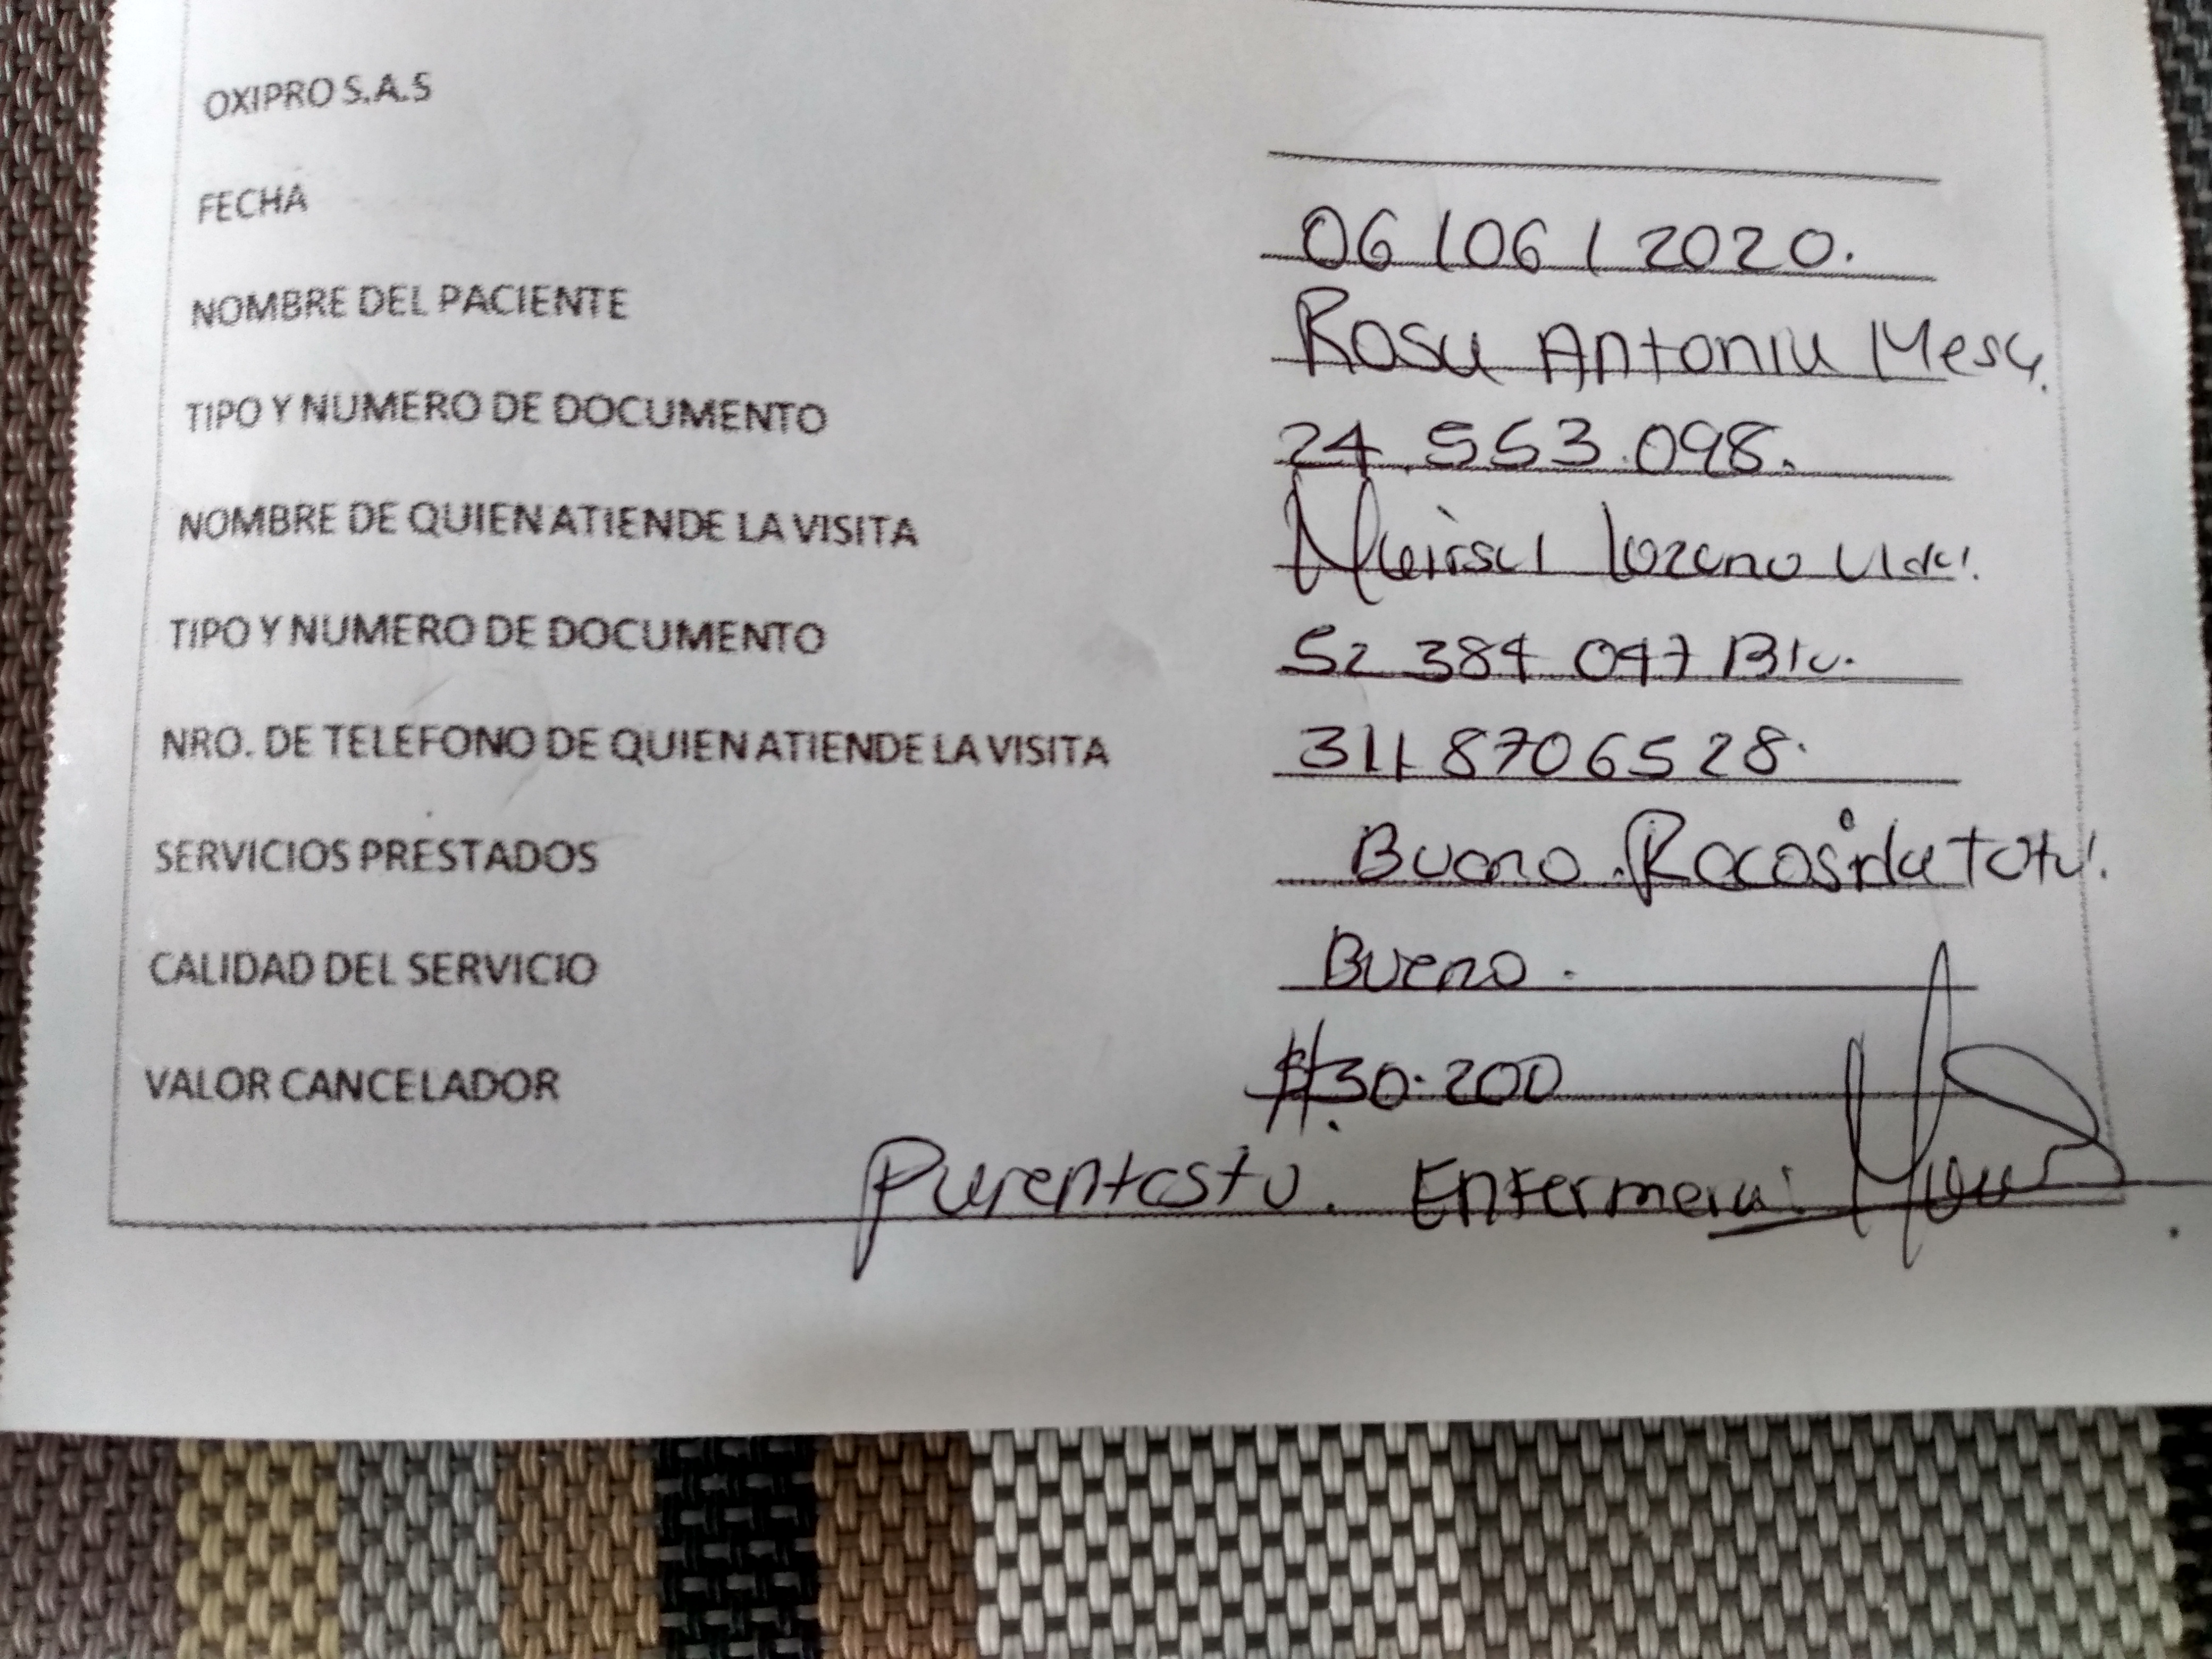 OXIPRO S.A.S
FECHA 06/06/2020.
NOMBRE DEL PACIENTE Rosa Antonia Mesa.
TIPO Y NUMERO DE DOCUMENTO 24.553.098.
NOMBRE DE QUIEN ATIENDE LA VISITA Lozano
TIPO Y NUMERO DE DOCUMENTO 52 384 047 Bta.
NRO. DE TELEFONO DE QUIEN ATIENDE LA VISITA 3118706528.
SERVICIOS PRESTADOS Bueno.
CALIDAD DEL SERVICIO Bueno.
VALOR CANCELADOR $30.200
Parentesto. Enfermera: